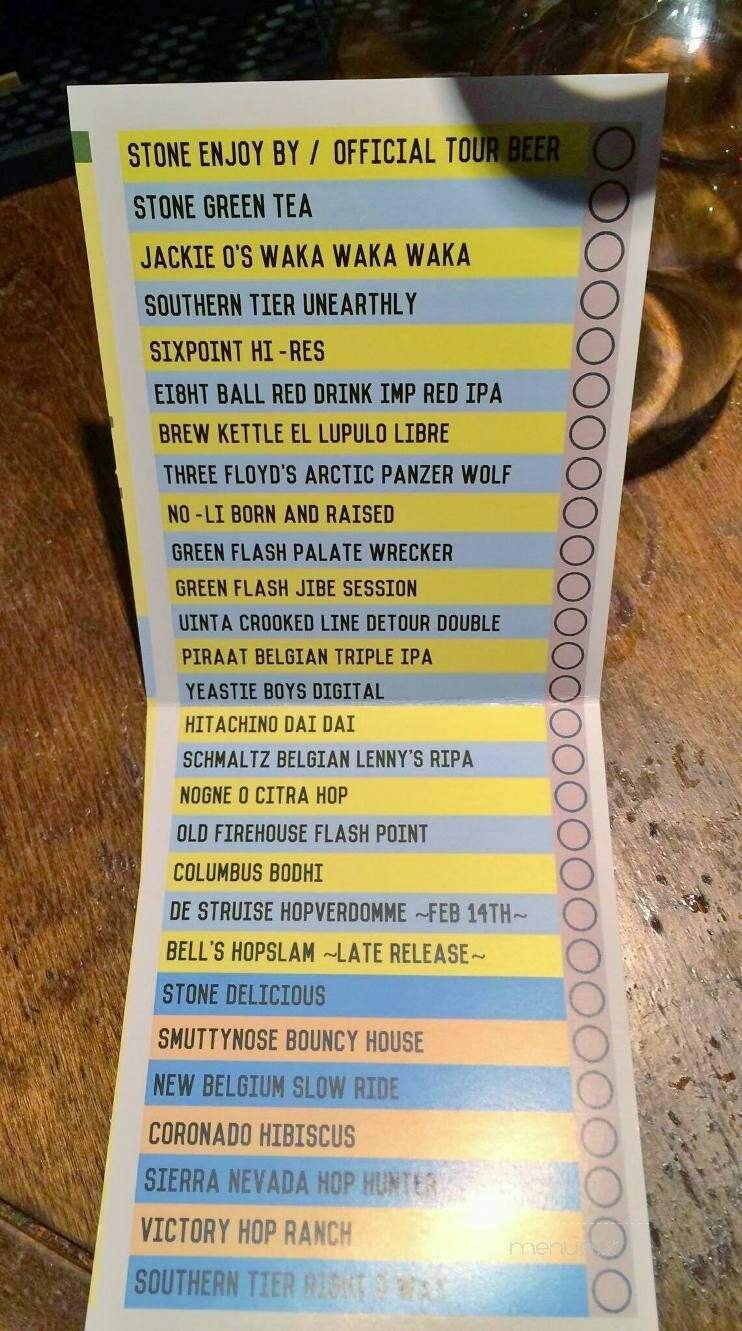 STONE ENJOY BY / OFFICIAL TOUR BEER
STONE GREEN TEA
JACKIE O'S WAKA WAKA WAKA
SOUTHERN TIER UNEARTHLY
SIXPOINT HI-RES
EI8HT BALL RED DRINK IMP RED IPA
BREW KETTLE EL LUPULO LIBRE
THREE FLOYD'S ARCTIC PANZER WOLF
NO-LI BORN AND RAISED
GREEN FLASH PALATE WRECKER
GREEN FLASH JIBE SESSION
UINTA CROOKED LINE DETOUR DOUBLE
PIRAAT BELGIAN TRIPLE IPA
YEASTIE BOYS DIGITAL
HITACHINO DAI DAI
SCHMALTZ BELGIAN LENNY'S RIPA
NOGNE O CITRA HOP
OLD FIREHOUSE FLASH POINT
COLUMBUS BODHI
DE STRUISE HOPVERDOMME ~FEB 14TH~
BELL'S HOPSLAM ~LATE RELEASE~
STONE DELICIOUS
SMUTTYNOSE BOUNCY HOUSE
NEW BELGIUM SLOW RIDE
CORONADO HIBISCUS
SIERRA NEVADA HOP HUNTER
VICTORY HOP RANCH
SOUTHERN TIER RIGHT O WAY